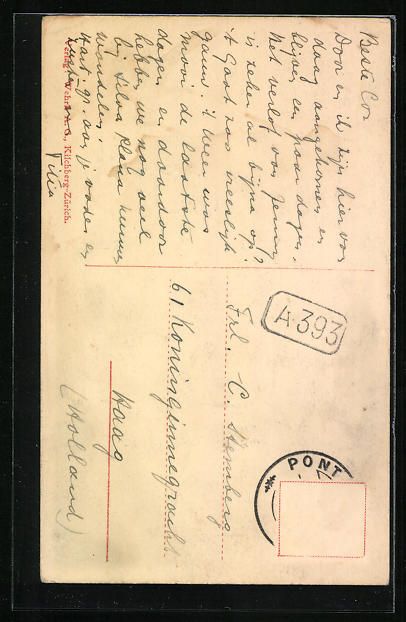 Beste Cor
Door en ik zijn hier van
daag aangekomen en
blijven een paar dagen.
Het verlof van Jenny
is zeker al bijna op?
't Gaat zoo vreeselijk
gauw. 't Weer was
mooi de laatste
dagen en daardoor
hebben we nog veel
bij Silva Plana kunnen
wandelen.
Hart. gr. aan je vader en
Verlag Wehrli A.-G., Kilchberg-Zürich.
A·393
PONT
Frl. C. Stemberg
61 Koninginnegracht.
Haag
(Holland)